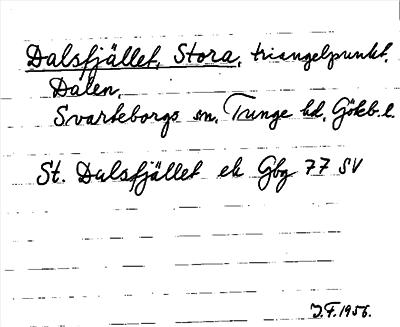 Dalsfjället, Stora, triangelpunkt,
Dalen,
Svarteborgs sn, Tunge hd, Göteb. l.
St. Dalsfjället ek Gbg 77 SV
J.F. 1956.